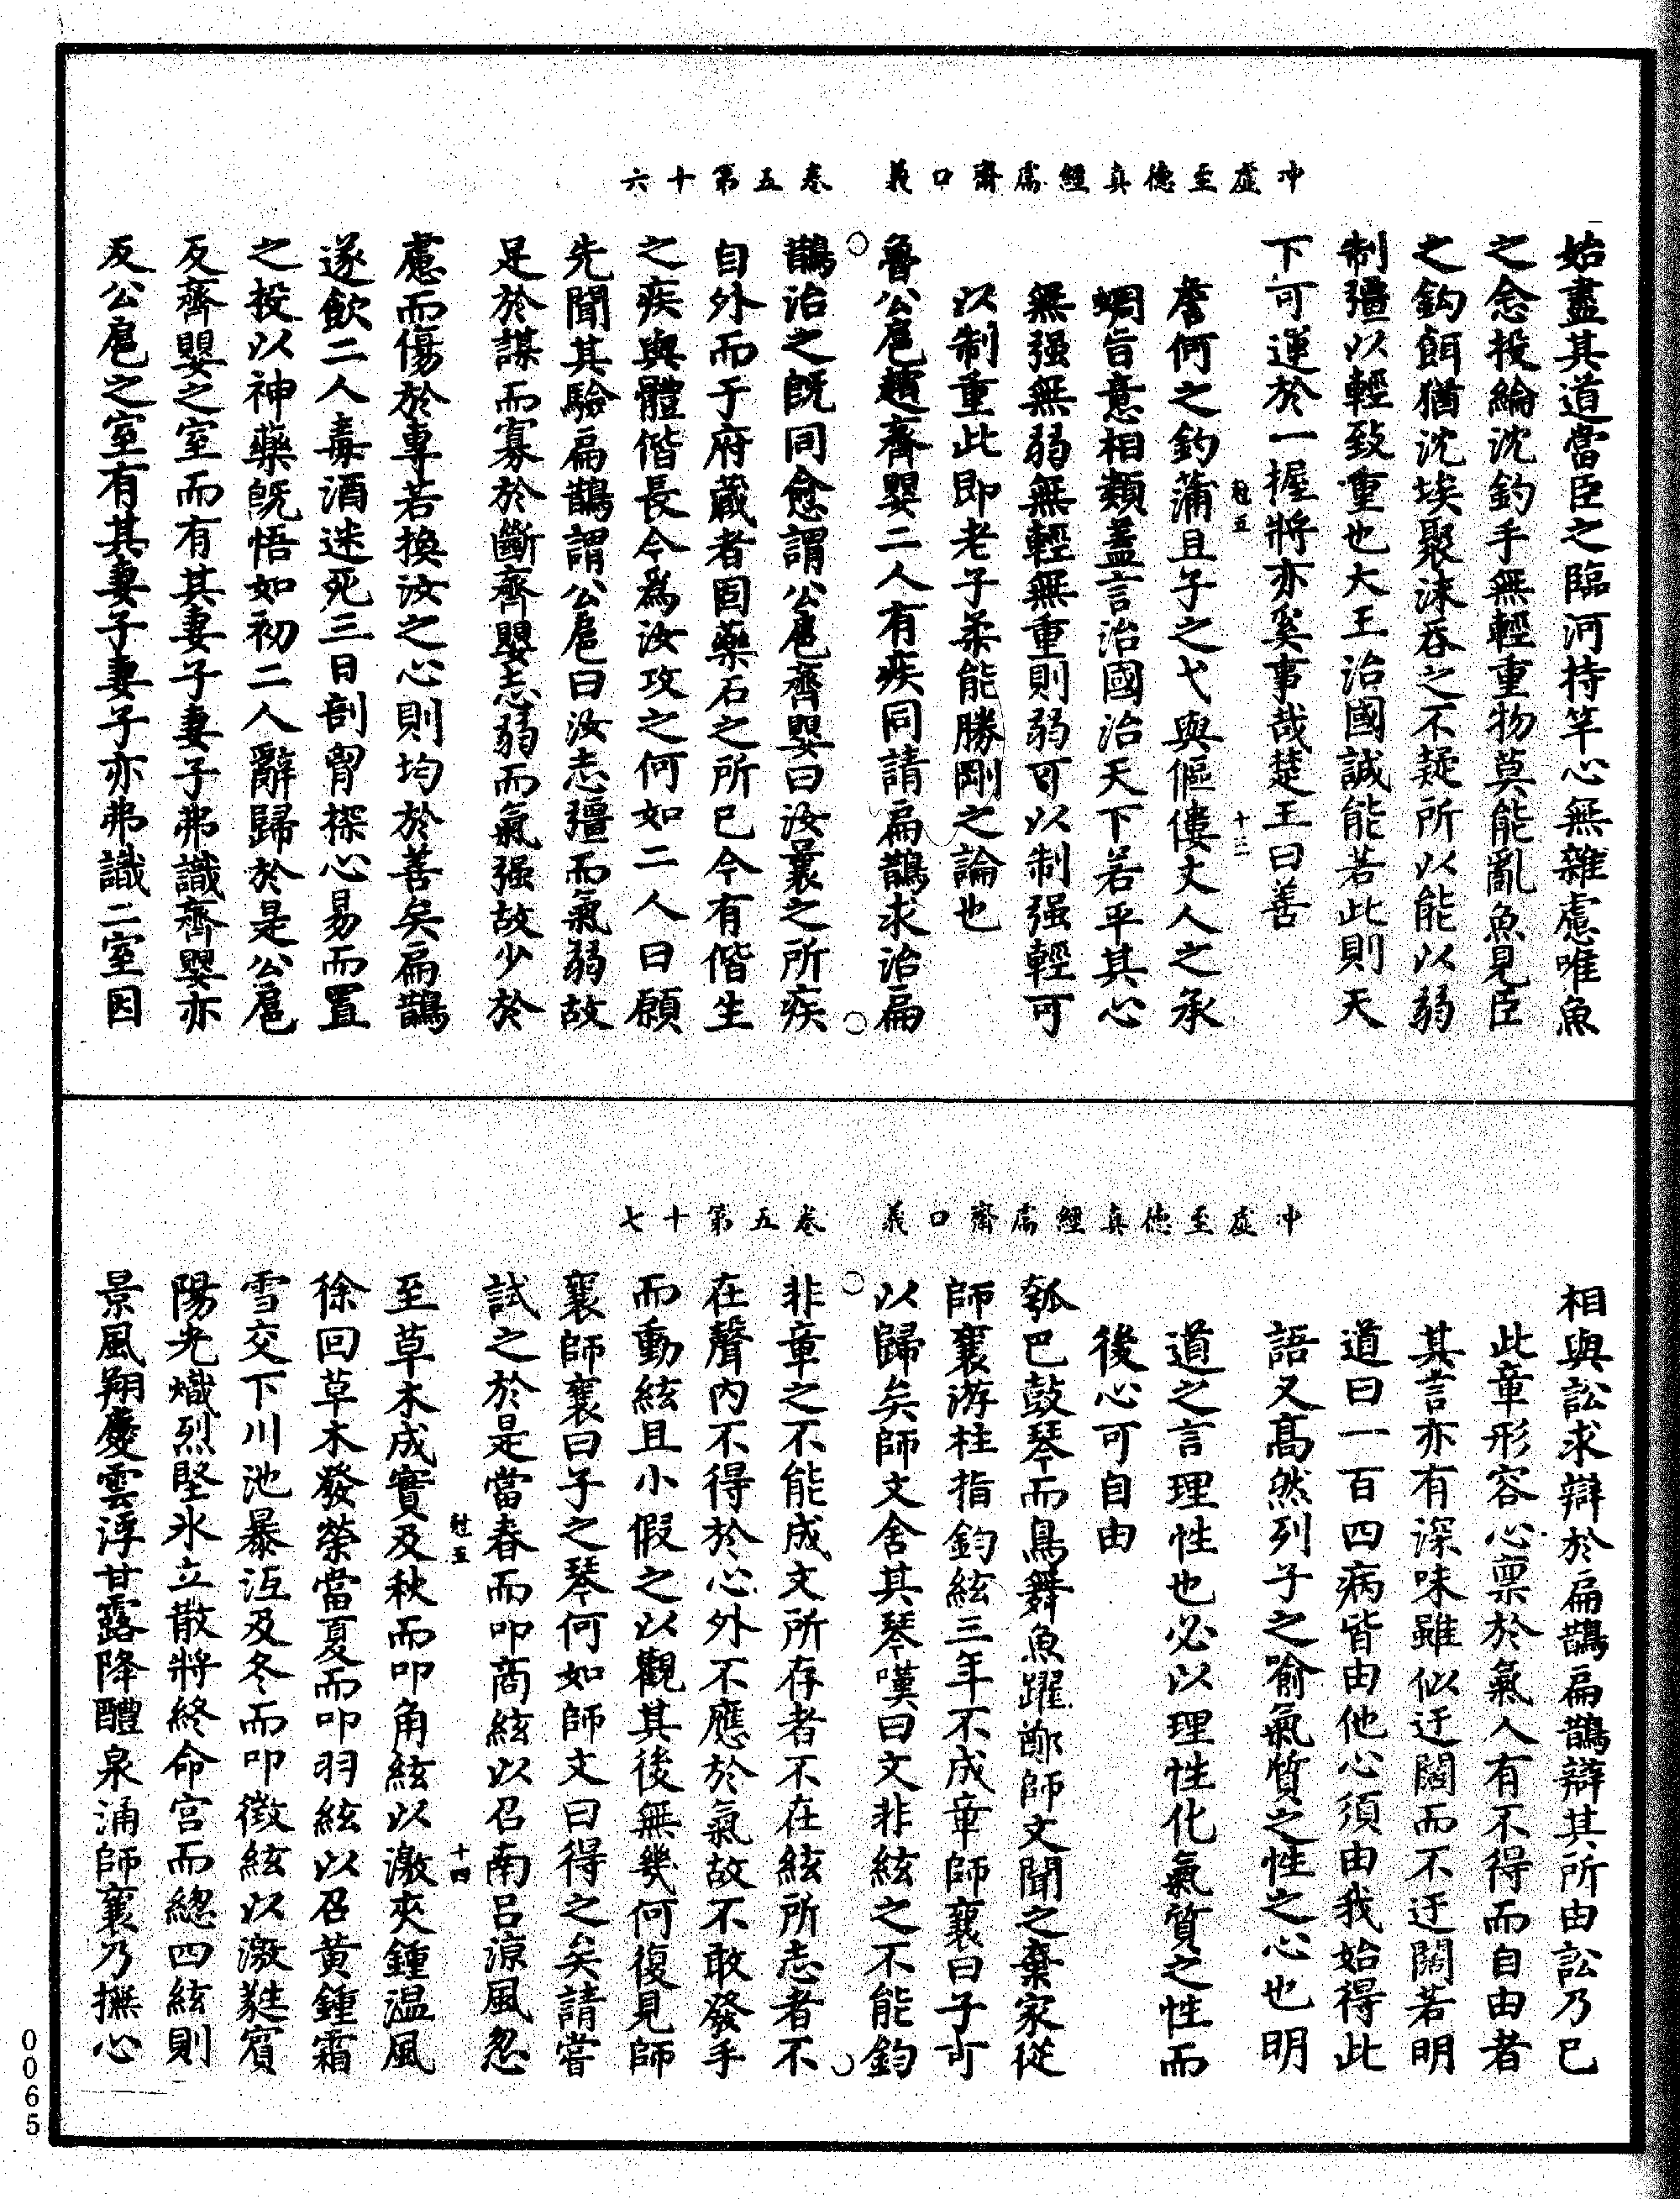 冲虛至德真經鬳齋口義　卷五第十六
始盡其道當臣之臨河持竿心無雜慮唯魚
之念投綸沈鈎手無輕重物莫能亂魚見臣
之鈎餌猶沈埃聚沫吞之不疑所以能以弱
制彊以輕致重也大王治國誠能若此則天
下可運於一握將亦奚事哉楚王曰善
𡊮五　十三
詹何之釣蒲且子之弋與傴僂丈人之承
蜩旨意相類蓋言治國治天下若平其心
無强無弱無輕無重則弱可以制强輕可
以制重此即老子柔能勝剛之論也
魯公扈趙齊嬰二人有疾同請扁鵲求治扁
鵲治之既同愈謂公扈齊嬰曰汝曩之所疾
自外而于府藏者固藥石之所已今有偕生
之疾與體偕長今爲汝攻之何如二人曰願
先聞其驗扁鵲謂公扈曰汝志彊而氣弱故
足於謀而寡於斷齊嬰志弱而氣强故少於
慮而傷於專若換汝之心則均於善矣扁鵲
遂飲二人毒酒迷死三日剖胷探心易而置
之投以神藥既悟如初二人辭歸於是公扈
反齊嬰之室而有其妻子妻子弗識齊嬰亦
反公扈之室有其妻子妻子亦弗識二室因
冲虛至德真經鬳齋口義　卷五第十七
相與訟求辯於扁鵲扁鵲辯其所由訟乃已
此章形容心稟於氣人有不得而自由者
其言亦有深味雖似迂闊而不迂闊若明
道曰一百四病皆由他心須由我始得此
語又高然列子之喻氣質之性之心也明
道之言理性也必以理性化氣質之性而
後心可自由
瓠巴鼓琴而鳥舞魚躍鄭師文聞之棄家從
師襄游柱指鈞絃三年不成章師襄曰子可
以歸矣師文舍其琴嘆曰文非絃之不能鈞
非章之不能成文所存者不在絃所志者不
在聲內不得於心外不應於氣故不敢發手
而動絃且小假之以觀其後無幾何復見師
襄師襄曰子之琴何如師文曰得之矣請嘗
試之於是當春而叩商絃以召南呂涼風忽
𡊮五　十四
至草木成實及秋而叩角絃以激夾鍾温風
徐回草木發榮當夏而叩羽絃以召黃鍾霜
雪交下川池暴沍及冬而叩徵絃以激蕤賓
陽光熾烈堅氷立散將終命宮而總四絃則
景風翔慶雲浮甘露降醴泉涌師襄乃撫心
0065